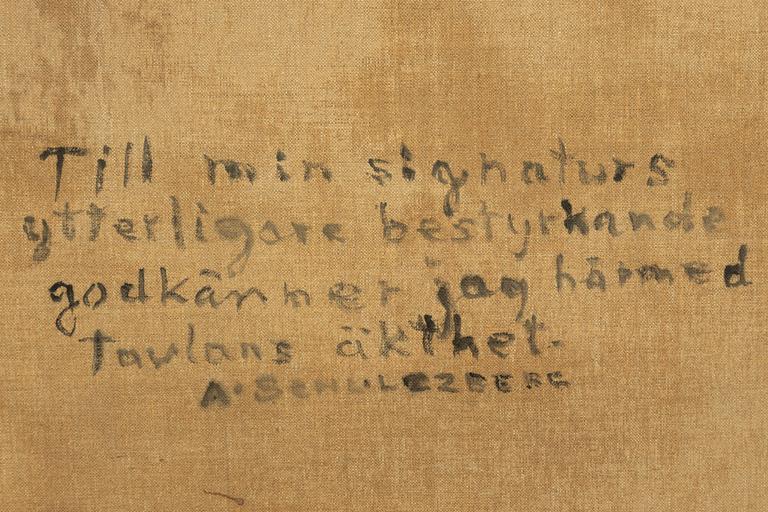 Till min signaturs
ytterligare bestyrkande
godkänner jag härmed
tavlans äkthet.
A. SCHULCZBERG